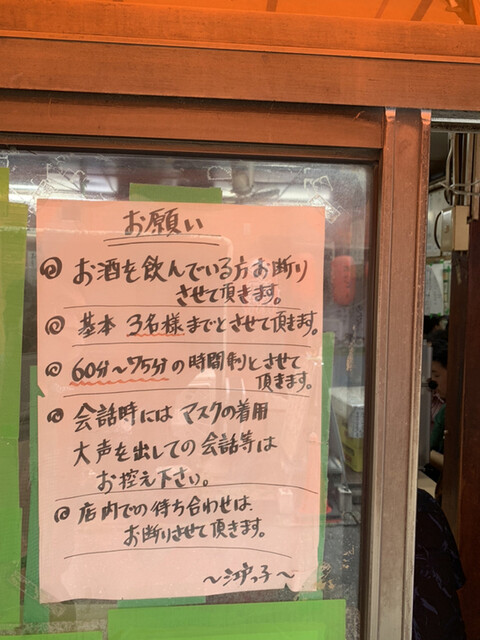 お願い
お酒を飲んでいる方お断り
させて頂きます。
基本 3名様までとさせて頂きます。
60分〜75分の時間制とさせて
頂きます。
会話時にはマスクの着用
大声を出しての会話等は
お控え下さい。
店内での待ち合わせは、
お断りさせて頂きます。
〜江戸っ子〜